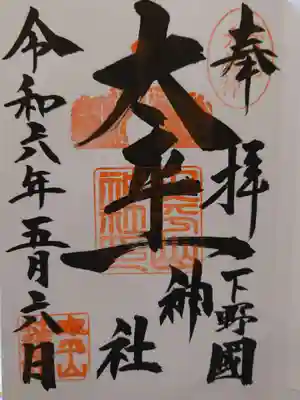 奉拝
下野國
太平山神社
令和六年五月六日
太平山